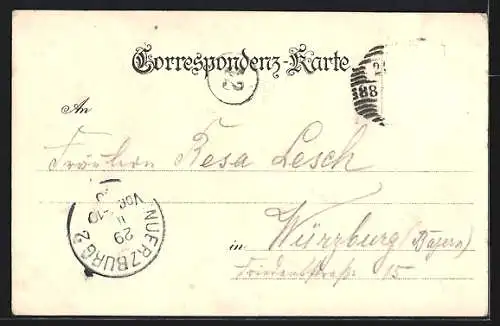 Correspondenz-Karte
12
88
An
Fräulein Resa Lesch
in Würzburg (Bayern)
Friedenstraße 15
WUERZBURG 2
29
11
VOR